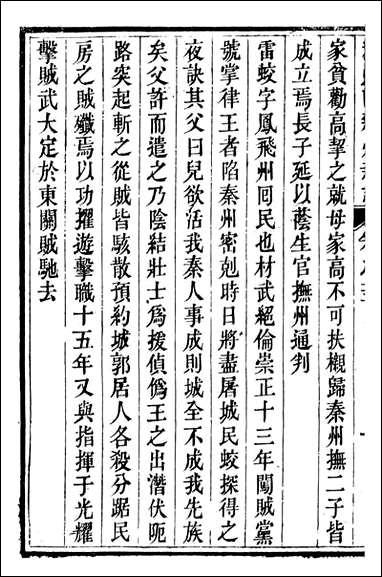 家貧勸高挈之就母家高不可扶櫬歸秦州撫二子皆
成立焉長子延以蔭生官撫州通判
雷蛟字鳳飛州囘民也材武絕倫崇正十三年闖賊黨
號掌律王者陷秦州密剋時日將盡屠城民蛟探得之
夜訣其父曰兒欲活我秦人事成則城全不成我先族
矣父許而遣之乃陰結壯士爲援偵僞王之出潛伏阨
路突起斬之從賊皆駭散預約城郭居人各殺分踞民
房之賊殲焉以功擢遊擊職十五年又與指揮于光耀
擊賊武大定於東關賊馳去